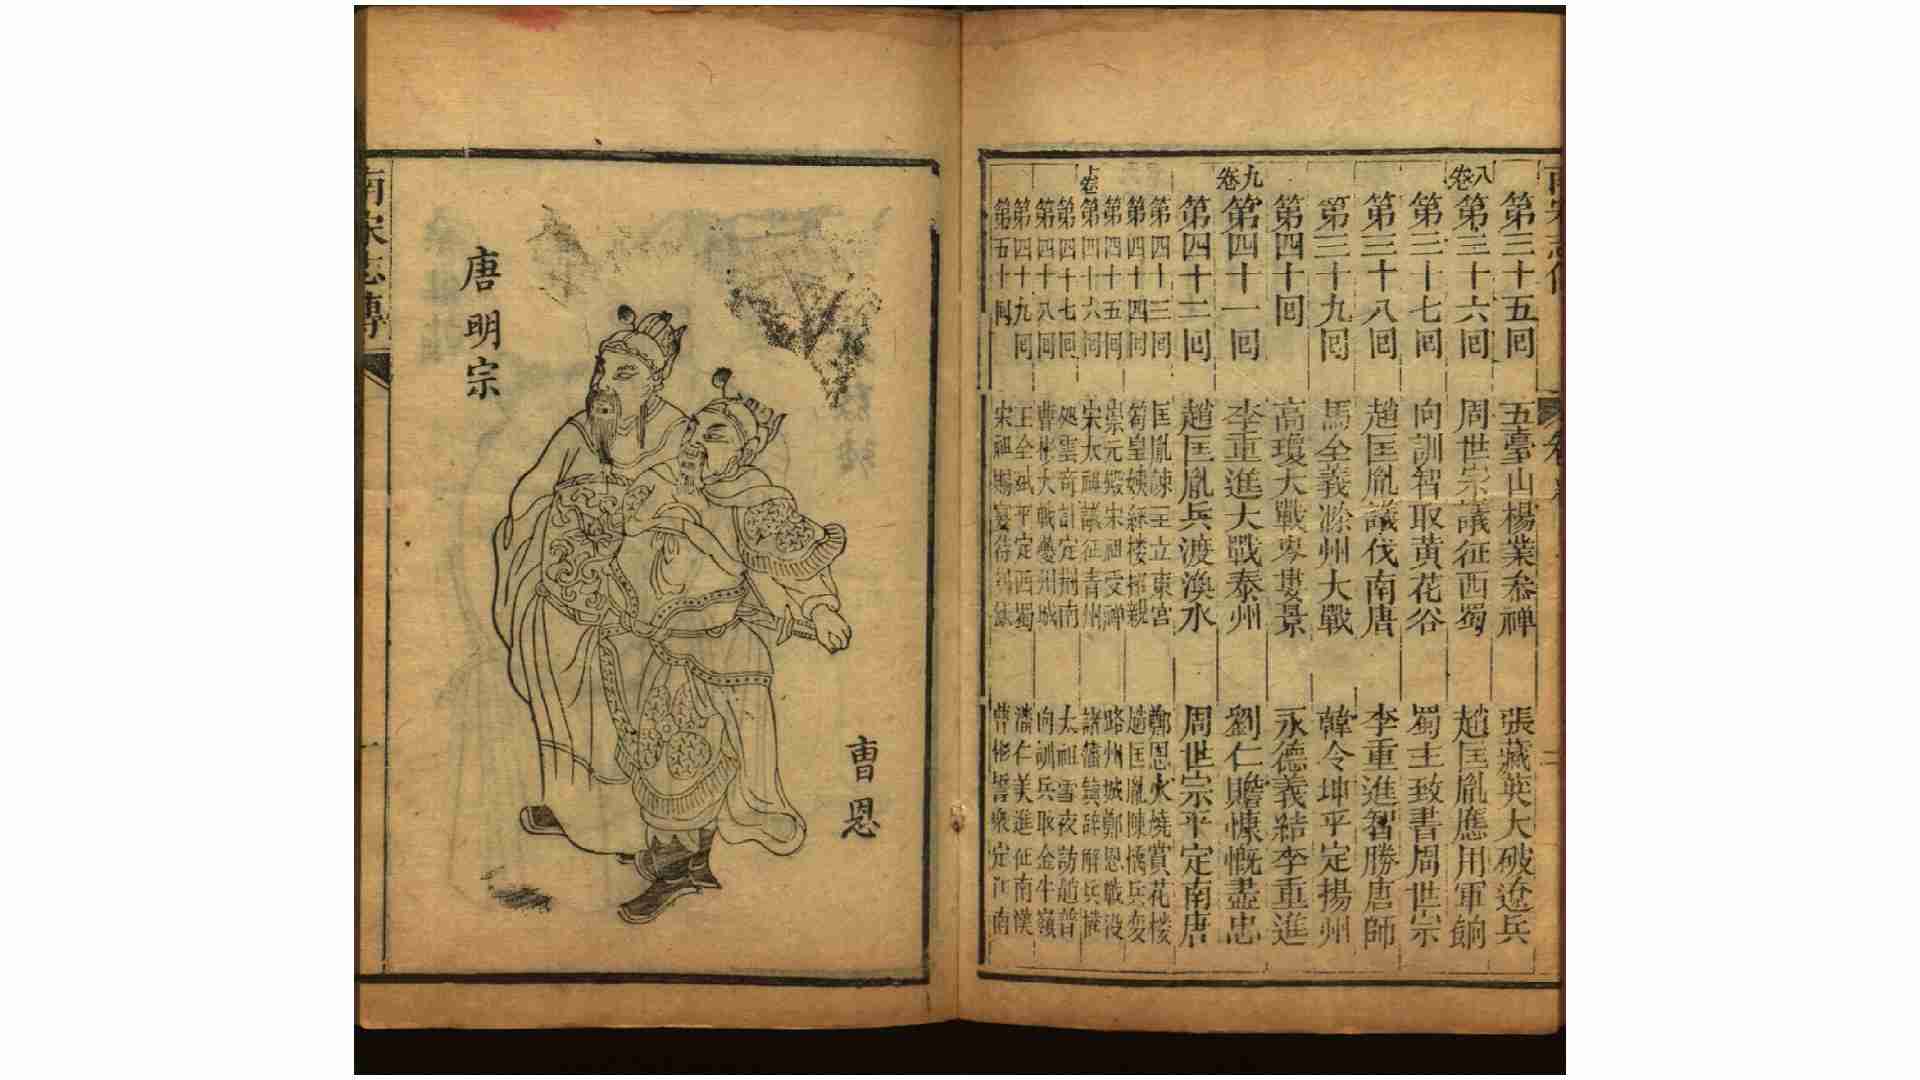 第三十五回 五臺山楊業參禪 張藏英大破遼兵
八卷 第三十六回 周世宗議征西蜀 趙匡胤應用軍餉
第三十七回 向訓智取黃花谷 蜀主致書周世宗
第三十八回 趙匡胤議伐南唐 李重進智勝唐師
第三十九回 馬全義滁州大戰 韓令坤平定揚州
第四十回 高瓊大戰岑婁景 永德義結李重進
九卷 第四十一回 李重進大戰泰州 劉仁贍慷慨盡忠
第四十二回 趙匡胤兵渡渙水 周世宗平定南唐
第四十三回 匡胤諫主立東宮 鄭恩火燒賞花樓
第四十四回 符皇姨綵樓招親 趙匡胤陳橋兵變
第四十五回 崇元殿宋祖受禪 路州城鄭恩戰沒
十卷 第四十六回 宋太祖議征青州 諸藩鎮辭解兵權
第四十七回 處雲奇計定荊南 太祖雪夜訪趙普
第四十八回 曹彬大戰夔州城 向訓兵取金牛嶺
第四十九回 王全斌平定西蜀 潘仁美進征南漢
第五十回 宋祖賜宴待 曹彬誓衆定江南
唐明宗
曹恩
南宋志傳